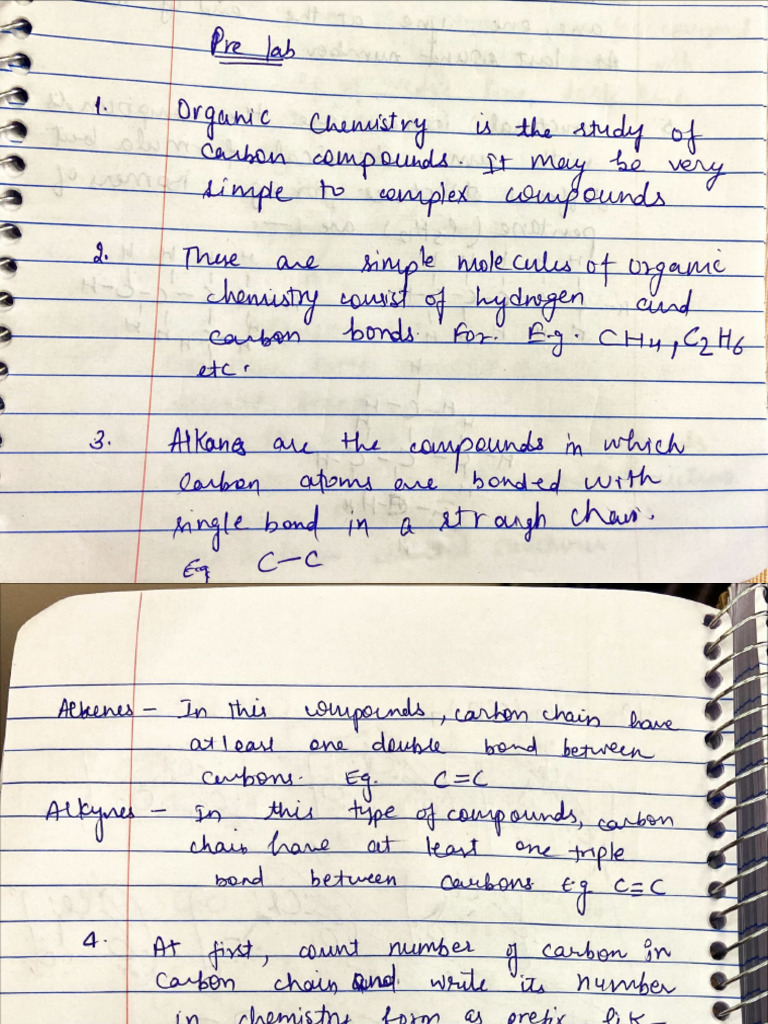 Pre lab
1. Organic Chemistry is the study of
carbon compounds. It may be very
simple to complex compounds
2. These are simple molecules of organic
chemistry consist of hydrogen and
carbon bonds. For. E.g. CH4, C2H6
etc.
3. Alkanes are the compounds in which
carbon atoms are bonded with
single bond in a chain.
Eg C-C
Alkenes - In this compounds, carbon chain have
at least one double bond between
carbons. Eg. C=C
Alkynes - In this type of compounds, carbon
chain have at least one triple
bond between carbons Eg C≡C
4. At first, count number of carbon in
carbon chain and write its number
in chemistry form as prefix